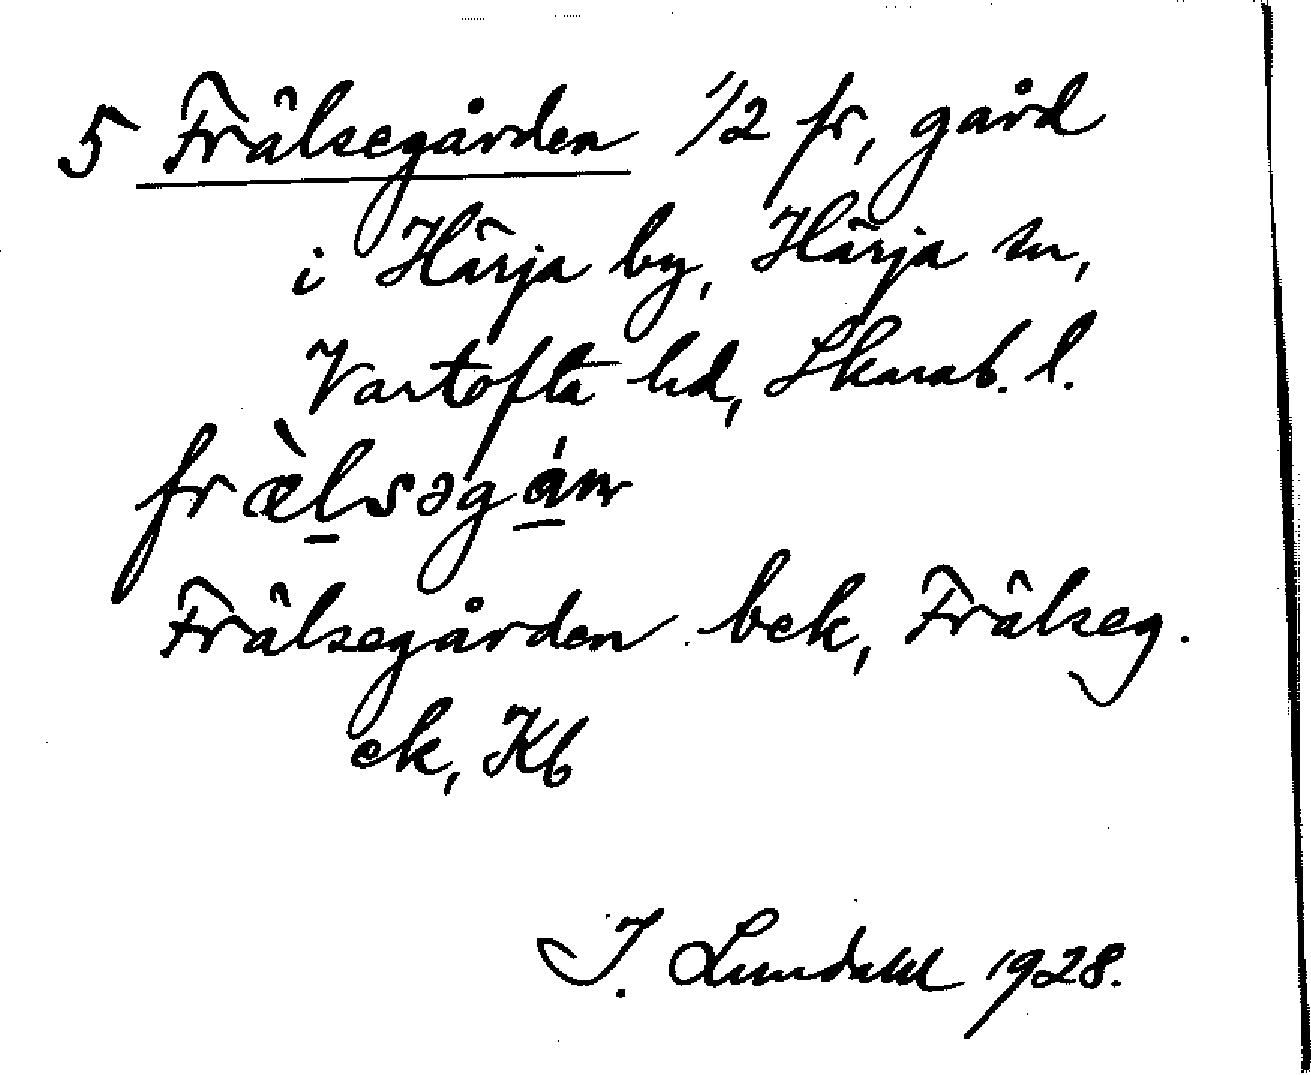 5 Frälsegården 1/2 fr, gård
i Härja by, Härja sn,
Vartofta hd, Skarab. l.
fræ̀lsəgánr
Frälsegården bek, Frälseg.
ek, Kb
I. Lundahl 1928.